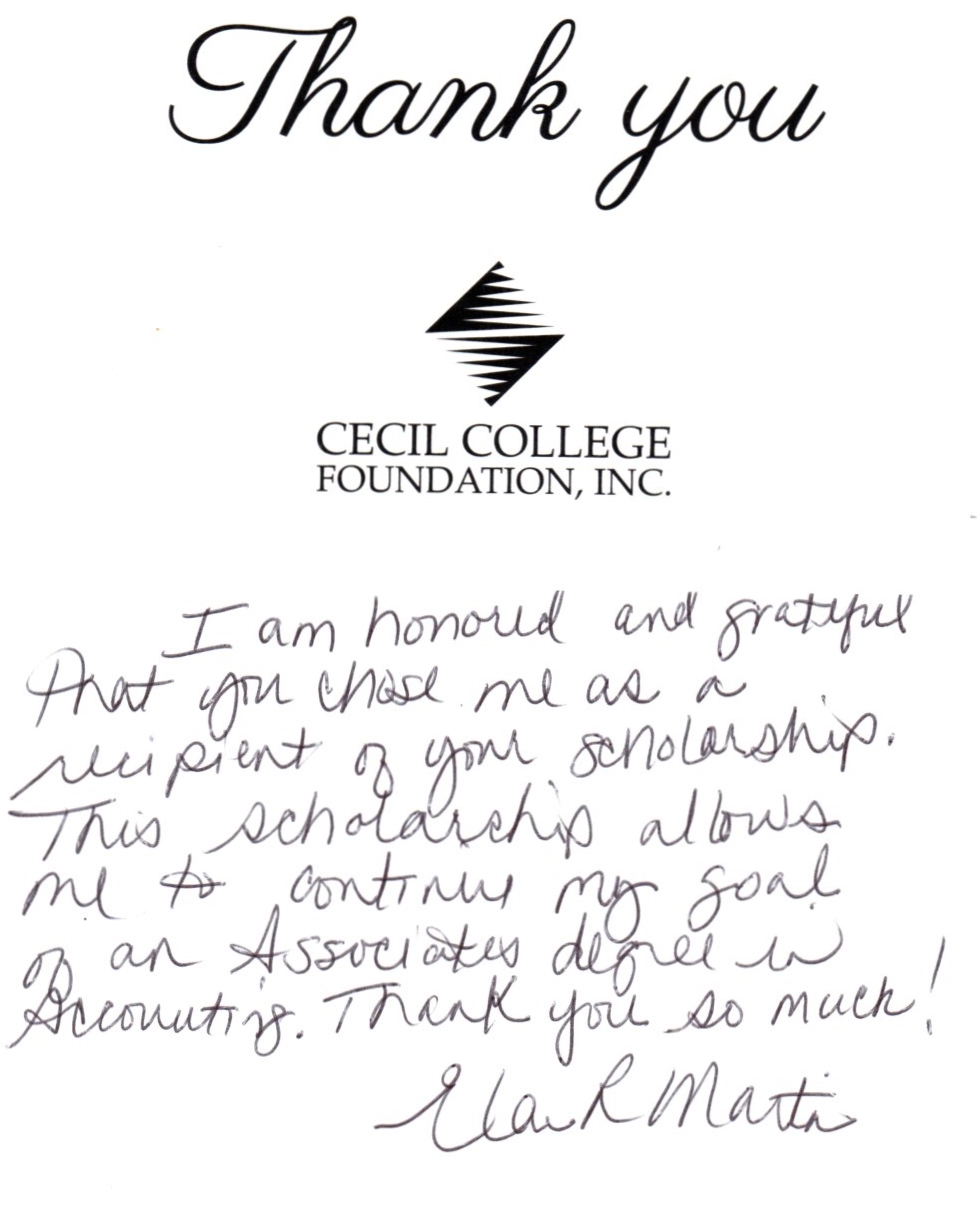 Thank you
CECIL COLLEGE
FOUNDATION, INC.
I am honored and grateful
that you chose me as a
recipient of your scholarship.
This scholarship allows
me to continue my goal
of an Associates degree in
Accounting. Thank you so much!
R Martin